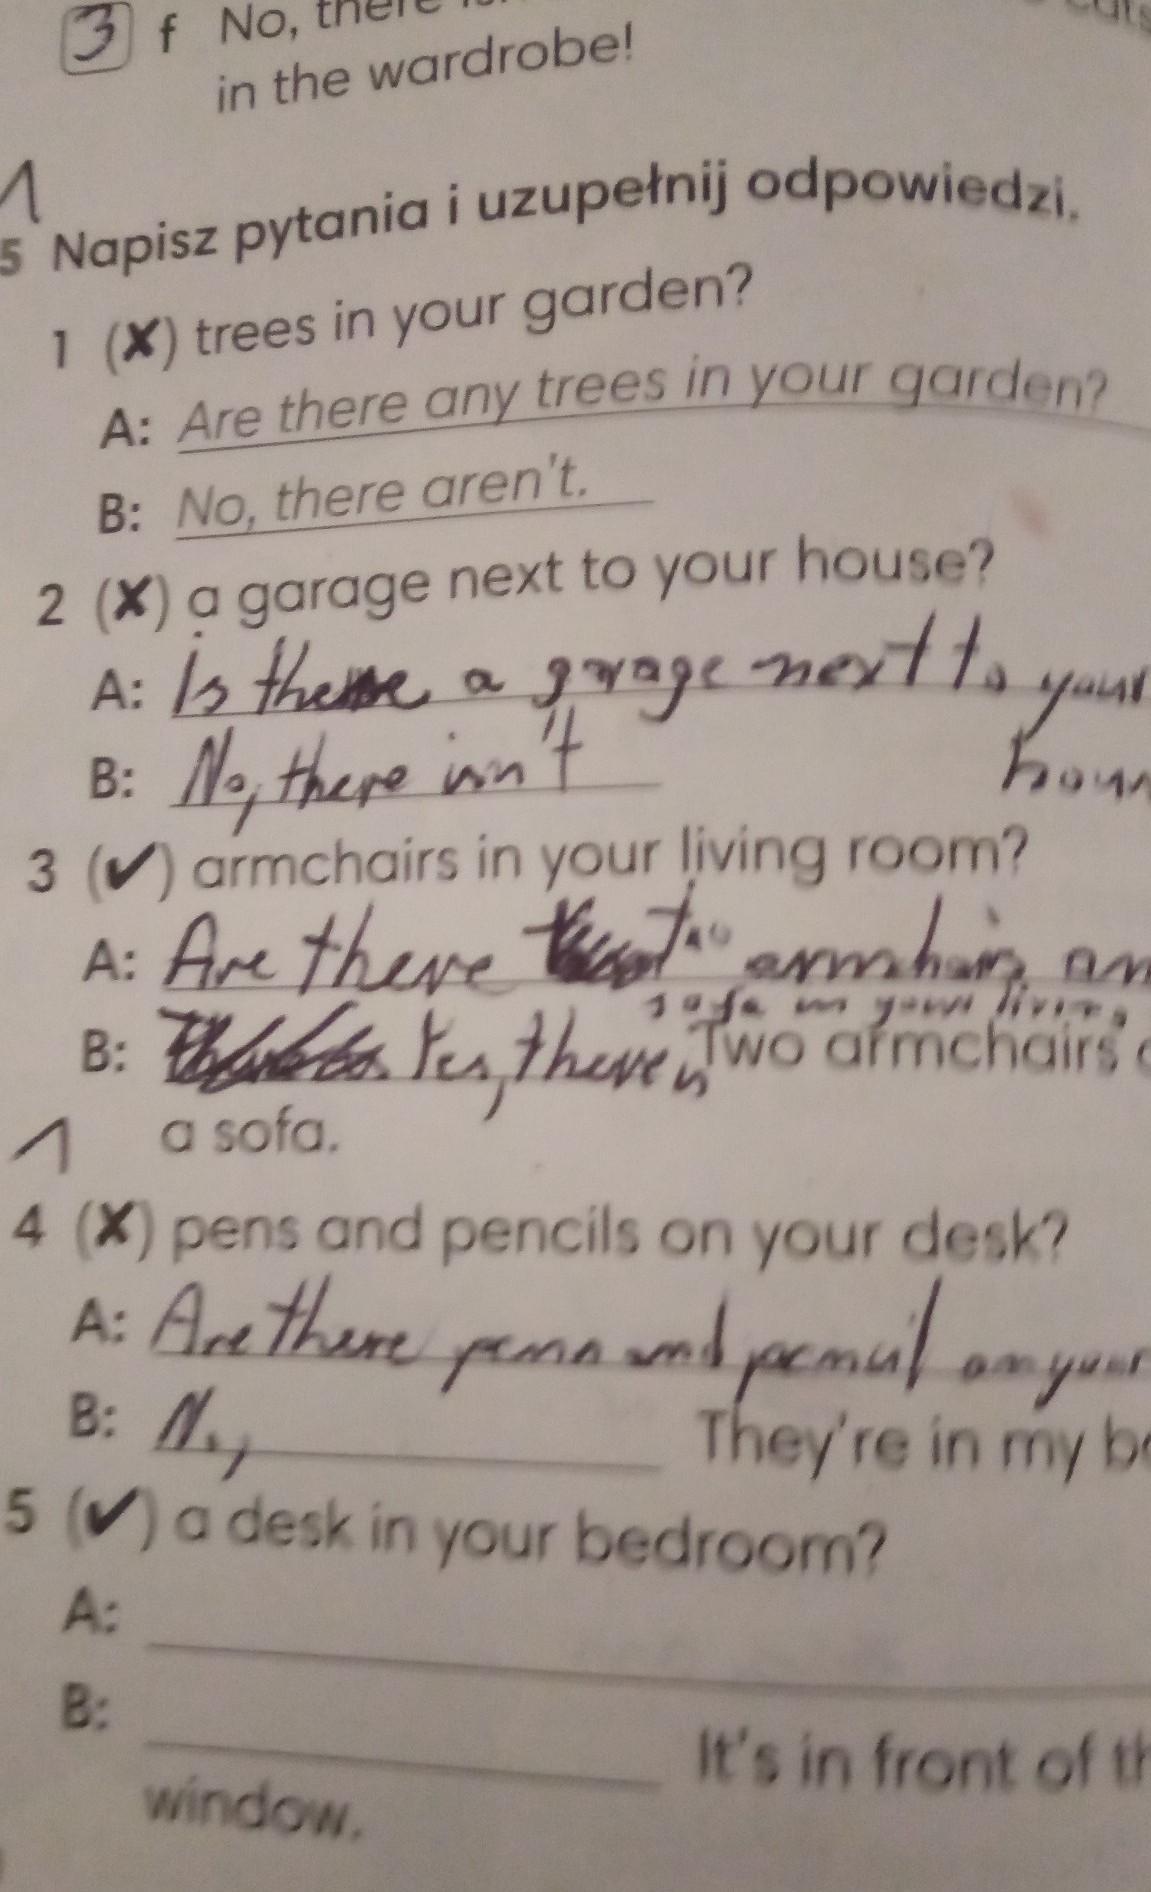 3 f No, there
in the wardrobe!
1
5 Napisz pytania i uzupełnij odpowiedzi.
1 (✗) trees in your garden?
A: Are there any trees in your garden?
B: No, there aren't.
2 (✗) a garage next to your house?
A: Is there a garage next to your
B: No, there isn't
3 (✔) armchairs in your living room?
A: Are there armchairs
sofa in your living
B: Yes, there is Two armchairs
1 a sofa.
4 (✗) pens and pencils on your desk?
A: Are there penn and pencil on your
B: No, They're in my
5 (✔) a desk in your bedroom?
A:
B: It's in front of
window.